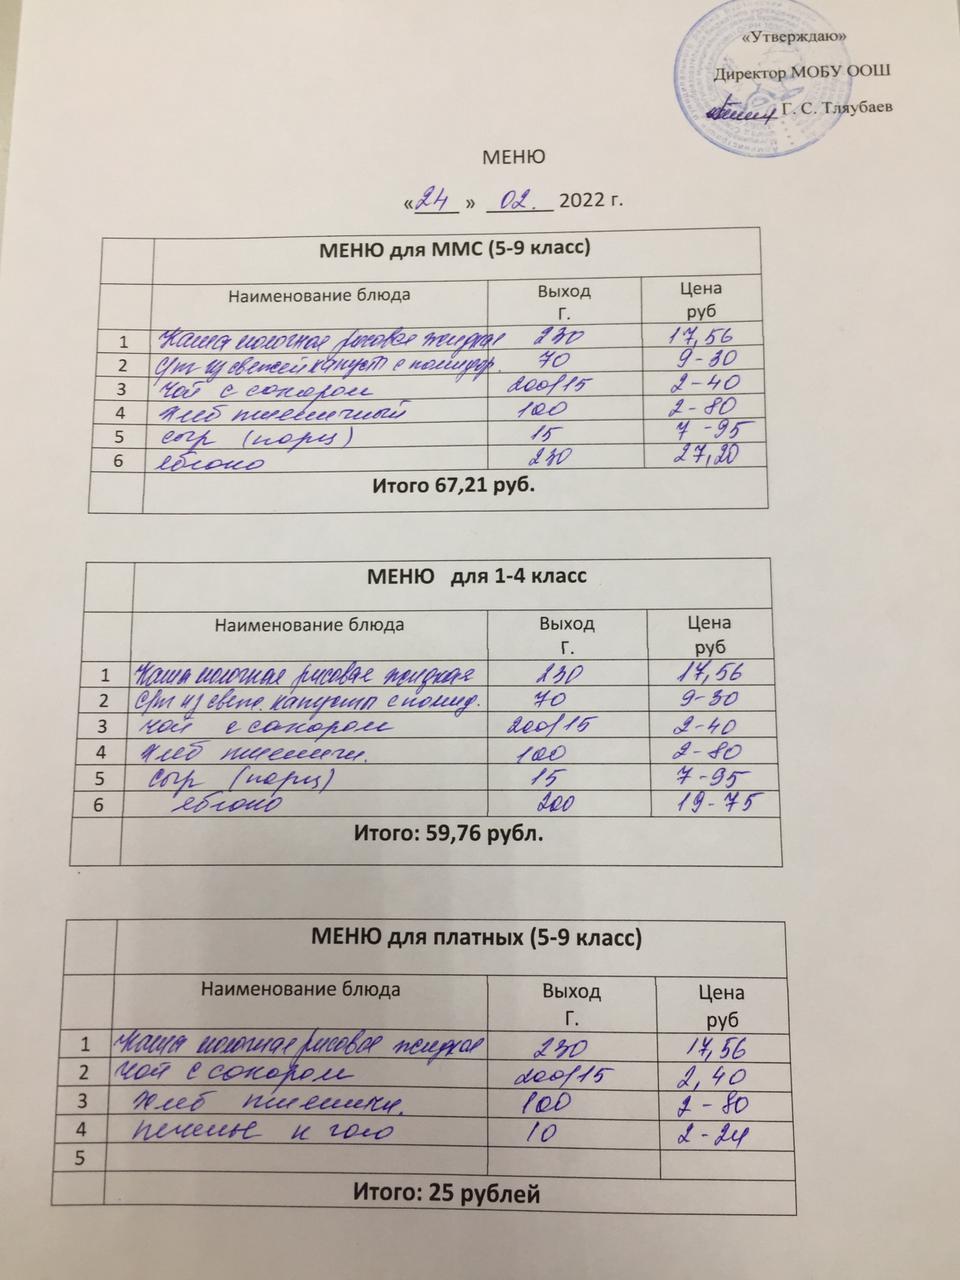 «Утверждаю»
Директор МОБУ ООШ
Г. С. Тляубаев
МЕНЮ
«24» 02. 2022 г.
МЕНЮ для ММС (5-9 класс)
Наименование блюда Выход Г. Цена руб
1 Каша молочная рисовая жидкая 230 17,56
2 С/т из свежей капуст с помидор. 70 9-30
3 Чай с сахаром 200/15 2-40
4 Хлеб пшеничный 100 2-80
5 сыр (порц) 15 7-95
6 яблоко 230 27,20
Итого 67,21 руб.
МЕНЮ для 1-4 класс
Наименование блюда Выход Г. Цена руб
1 Каша молочная рисовая жидкая 230 17,56
2 С/т из свеж. капусты с помид. 70 9-30
3 Чай с сахаром 200/15 2-40
4 Хлеб пшеничн. 100 2-80
5 Сыр (порц) 15 7-95
6 яблоко 200 19-75
Итого: 59,76 рубл.
МЕНЮ для платных (5-9 класс)
Наименование блюда Выход Г. Цена руб
1 Каша молочная рисовая жидкая 230 17,56
2 Чай с сахаром 200/15 2,40
3 Хлеб пшеничн. 100 2-80
4 печенье к чаю 10 2-24
5
Итого: 25 рублей